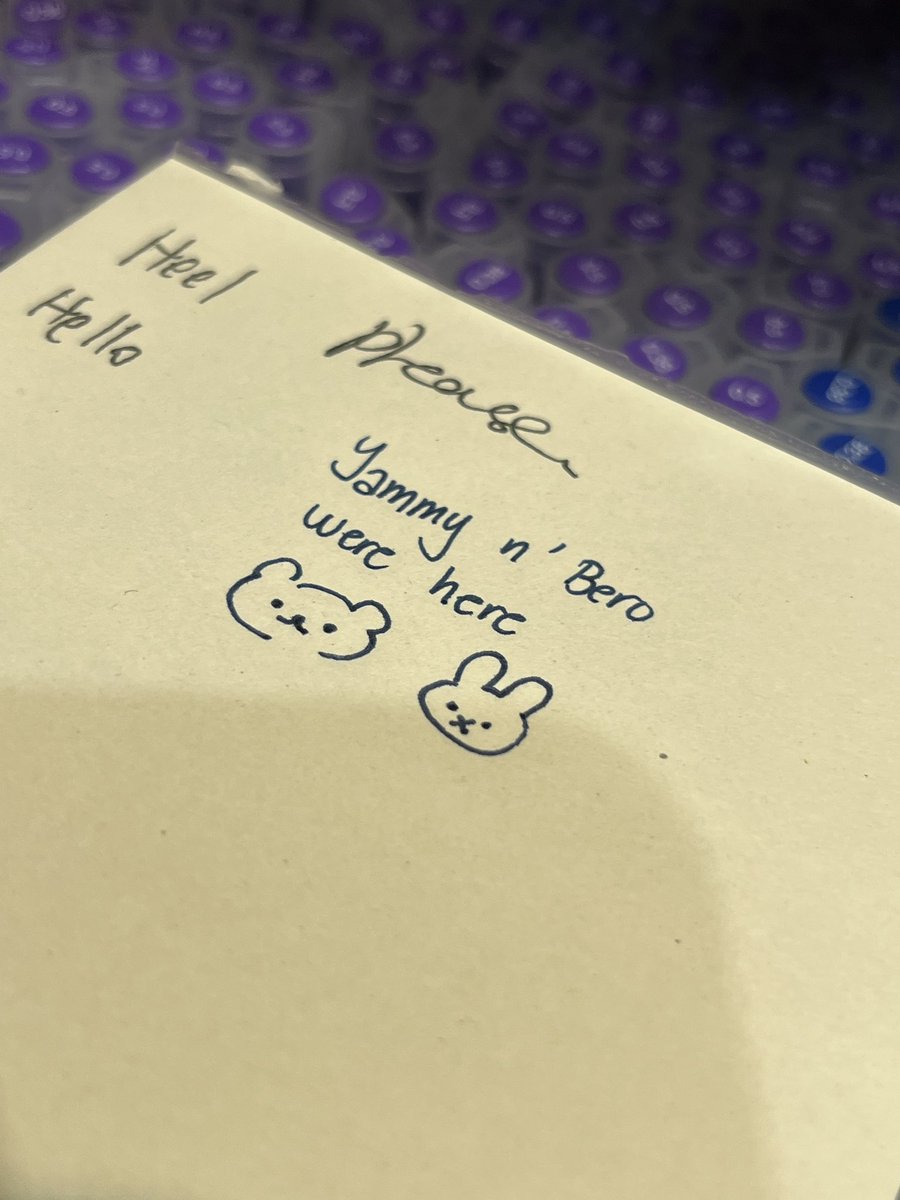 Heel
Hello
please
Yammy n' Bero
were here